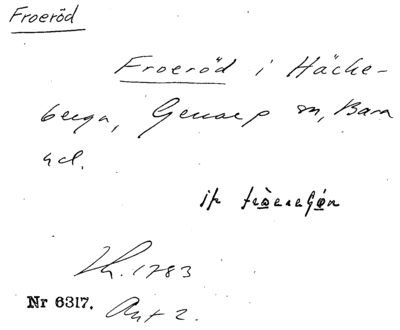 Froeröd
Froeröd i Häcke-
berga, Genarp sn, Bara
hd.
jfr
Lh. 1783
Nr 6317. Ant 2.